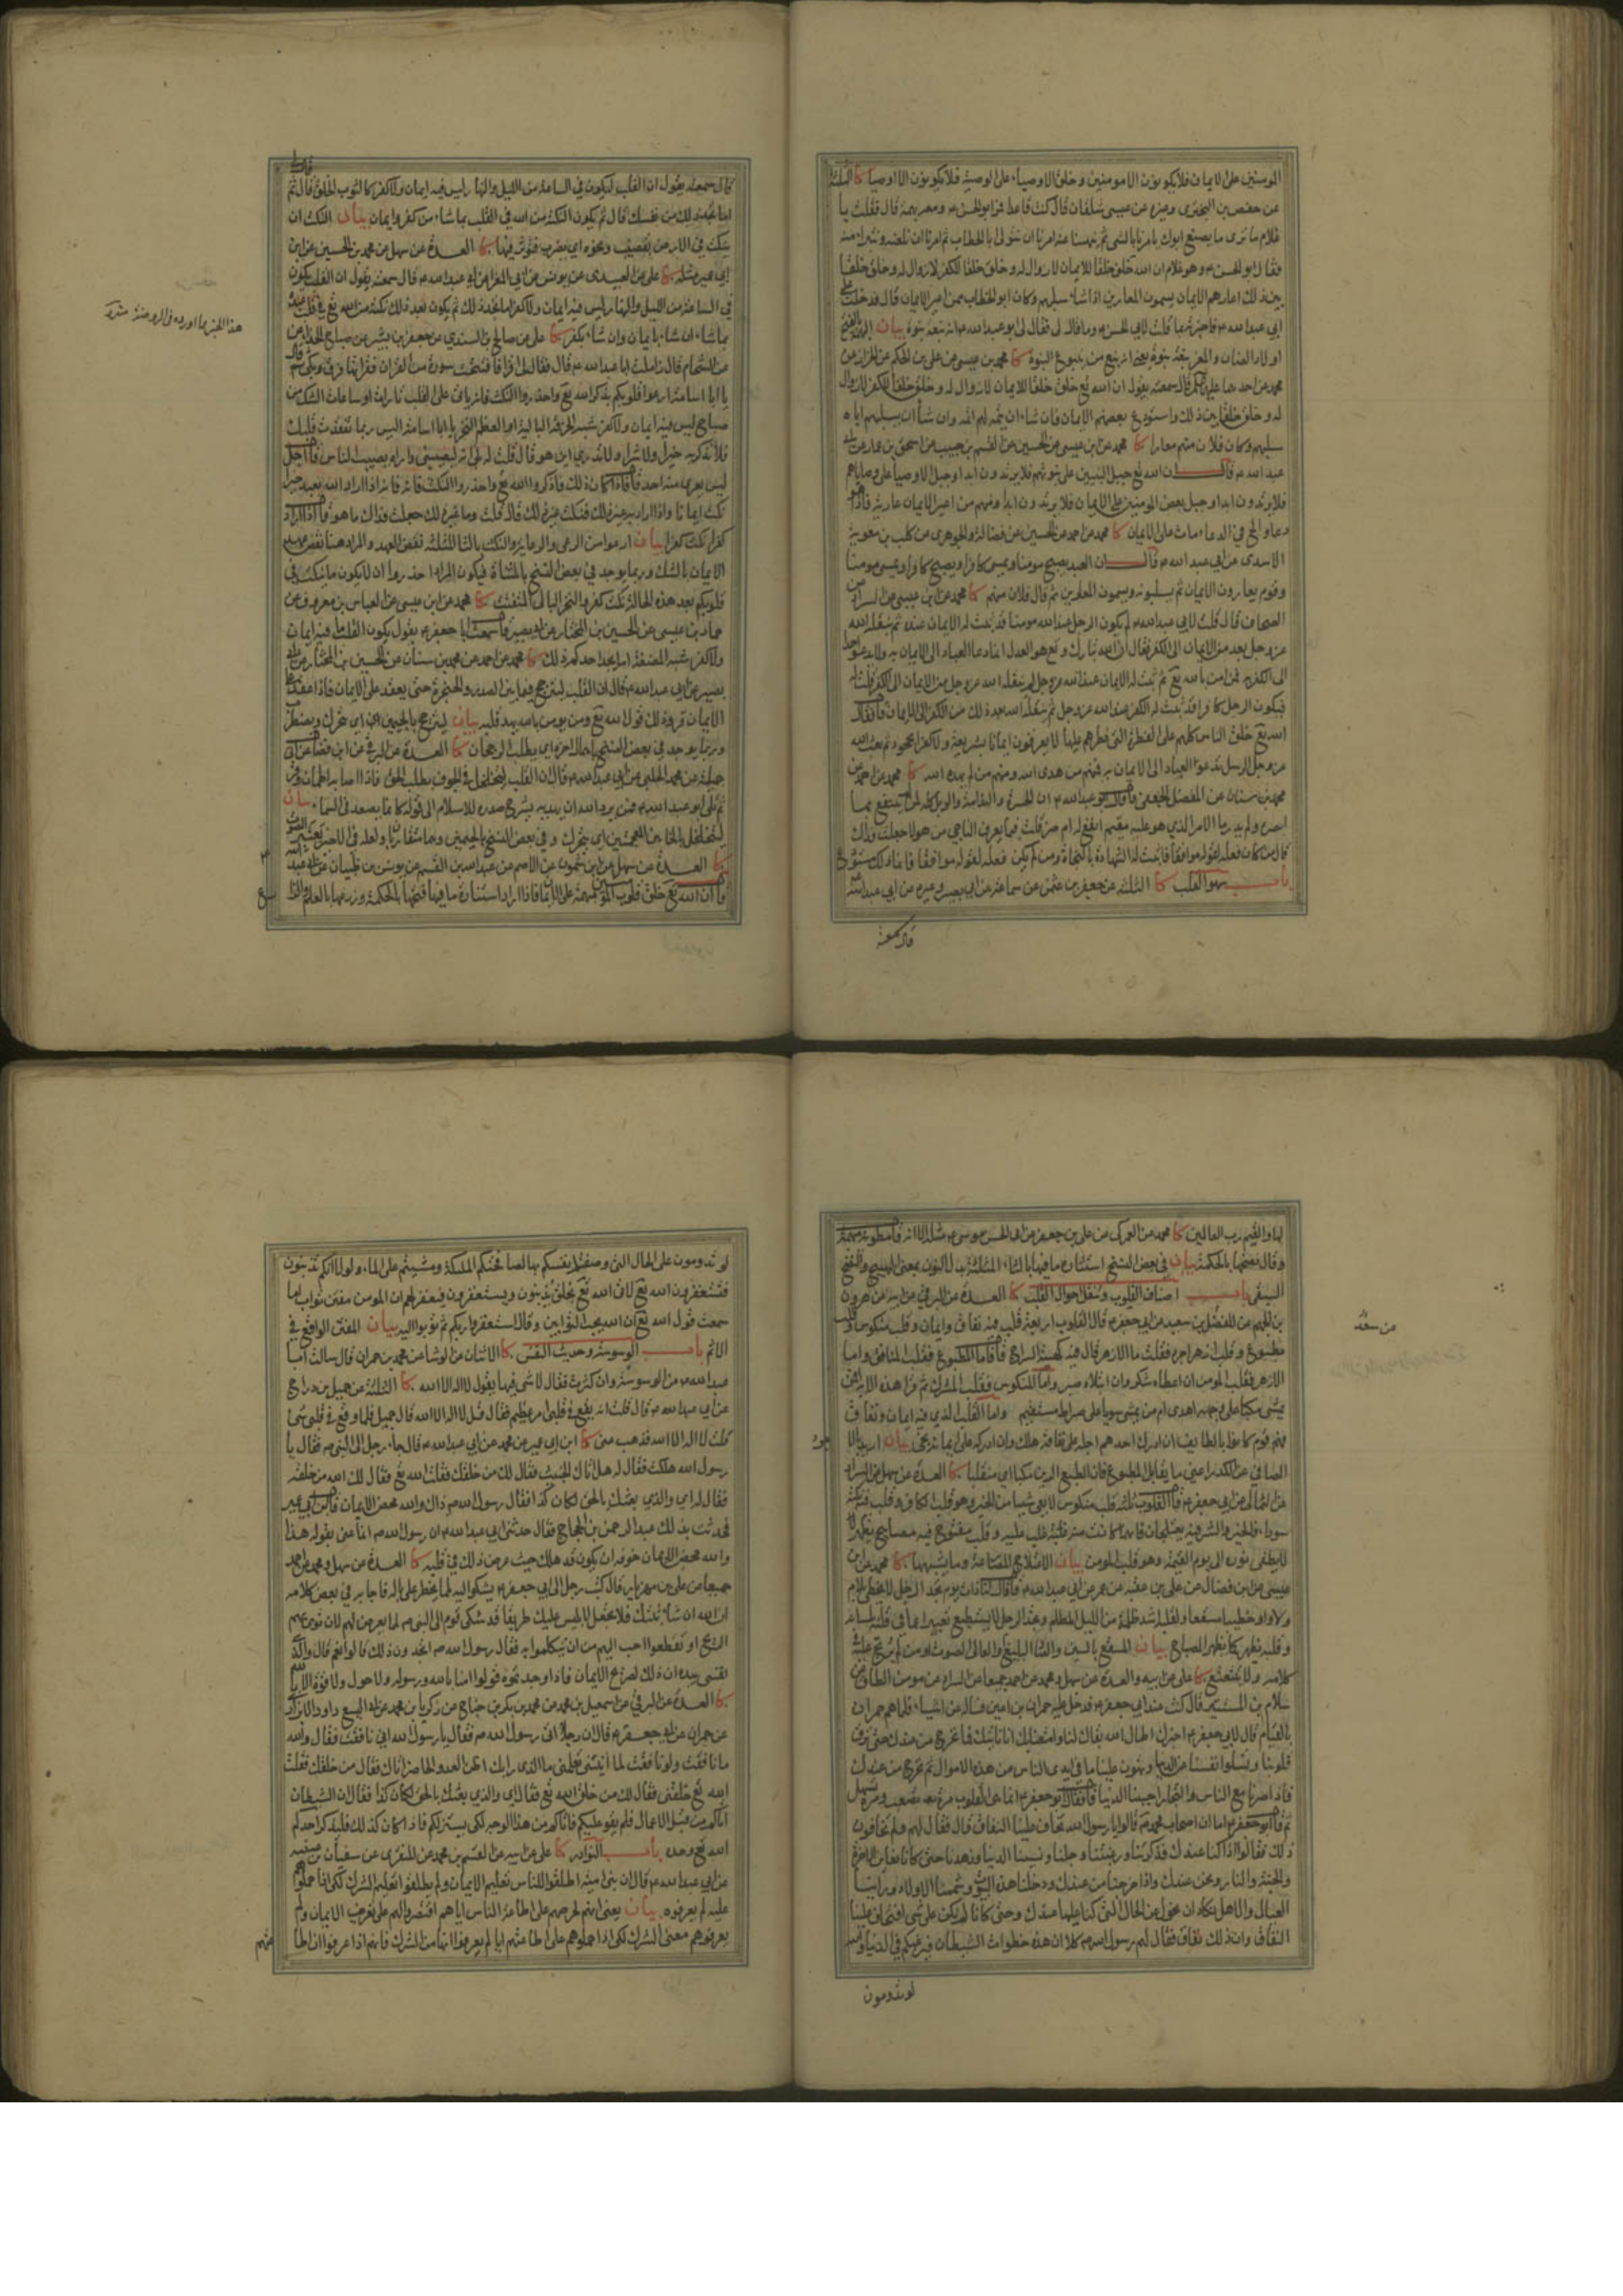 المؤمنين على الايمان فلا يكونون الا مومنين وخلق الاوصياء على الوصية فلا يكونون الا اوصيا كا الثلثة
عن حفص بن البختري وغيره عن عيسى شلقان قال كنت قاعدا فمر ابو الحسن م ومعه بهمة قال فقلت يا
غلام ما ترى ما يصنع ابوك يامرنا بالشى ثم ينهانا عنه امرنا ان نتولى ابا الخطاب ثم امرنا ان نلعنه ونتبرأ منه
فقال ابو الحسن م وهو غلام ان الله خلق خلقا للايمان لا زوال له وخلق خلقا للكفر لا زوال له وخلق خلقا
بين ذلك اعارهم الايمان يسمون المعارين اذا شاء سلبهم وكان ابو الخطاب ممن اعير الايمان قال فدخلت على
ابي عبد الله م فاخبرته بما قلت لابي الحسن م وما قال لى فقال لى ابو عبد الله م انه نبعة نبوة بيان
اولاد الضان والمعز نبعة نبوة يعني انه نبع من ينبوع النبوة كا محمد بن عيسى عن علي بن الحكم عن الخراز عن
محمد عن احدهما عليهما قال سمعته يقول ان الله تع خلق خلقا للايمان لا زوال له وخلق خلقا للكفر لا زوال
له وخلق خلقا بين ذلك واستودع بعضهم الايمان فان شاء ان يتمه لهم اتمه وان شاء ان يسلبهم اياه
سلبهم وكان فلان منهم معارا كا محمد عن ابن عيسى عن الحسين عن القسم بن حبيب عن اسحق بن عمار عن ابي
عبد الله م قال ان الله تع جبل النبيين على نبوتهم فلا يرتدون ابدا وجبل الاوصيا على وصاياهم
فلا يرتدون ابدا وجبل بعض المومنين على الايمان فلا يرتدون ابدا ومنهم من اعير الايمان عارية فاذا هو
دعا والح في الدعاء مات على الايمان كا محمد عن احمد عن الحسين عن فضالة والجوهري عن كليب بن معوية
الاسدى عن ابي عبد الله م قال ان العبد يصبح مومنا ويمسى كافرا ويصبح كافرا ويمسى مومنا
وقوم يعارون الايمان ثم يسلبونه ويسمون المعارين ثم قال فلان منهم كا محمد عن ابن عيسى عن السراد عن
الصحاف قال قلت لابي عبد الله م لم يكون الرجل عند الله مومنا قد ثبت له الايمان عنده ثم ينقله الله
عز وجل بعد من الايمان الى الكفر فقال ان الله تبارك وتع هو العدل انما دعا العباد الى الايمان به ولا يدعو احدا
الى الكفر به فمن امن بالله تع ثم ثبت له الايمان عند الله عز وجل لم ينقله الله عز وجل من الايمان الى الكفر قلت له
فيكون الرجل كافرا قد ثبت له الكفر عند الله عز وجل ثم ينقله الله بعد ذلك من الكفر الى الايمان قال فقال
الله تع خلق الناس كلهم على الفطرة التى فطرهم عليها لا يعرفون ايمانا بشريعة ولا كفرا بجحود ثم بعث الله
عز وجل الرسل تدعوا العباد الى الايمان به فمنهم من هدى الله ومنهم من لم يهده الله كا محمد عن احمد عن
محمد بن سنان عن المفضل الجعفى قال قال ابو عبد الله م ان الحسرة والندامة والويل كله لمن لم ينتفع بما
ابصره ولم يدر ما الامر الذي هو عليه مقيم انفع له ام ضر قلت فبما يعرف الناجى من هولاء جعلت فداك
قال من كان فعله لقوله موافقا فاثبت له الشهادة بالنجاة ومن لم يكن فعله لقوله موافقا فانما ذلك مستودع
باب سهو القلب كا الثلثة عن جعفر بن عثمن عن سماعة عن ابي بصير وغيره عن ابي عبد الله
قال سمعته
قال سمعته يقول ان القلب ليكون في الساعة من الليل والنهار ليس فيه ايمان ولا كفر كالثوب الخلق قال ثم
اما تجد ذلك من نفسك قال ثم يكون النكتة من الله في القلب بما شاء من كفر وايمان بيان النكت ان
ينكت في الارض بقضيب ونحوه اي يضرب فتؤثر فيها كا العدة عن سهل عن محمد بن الحسين عن ابن
ابي عمير مثله كا علي عن العبيدى عن يونس عن ابي المغرا عن ابي عبد الله م قال سمعته يقول ان القلب يكون
في الساعة من الليل والنهار ليس فيه ايمان ولا كفر اما تجد ذلك ثم يكون بعد ذلك نكتة من الله تع في قلب عبده
بما شاء ان شاء بايمان وان شاء بكفر كا علي عن صالح بن السندي عن جعفر بن بشير عن صباح الحذاء عن
عن الشحام قال زاملت ابا عبد الله م قال فقال لى اقرا فافتتحت سورة من القران فقراتها فرق وبكى ثم قال
يا ابا اسامة ارعوا قلوبكم بذكر الله تع واحذروا النكت فانه ياتى على القلب تارات او ساعات الشك من
صباح ليس فيه ايمان ولا كفر شبه الخرقة البالية او العظم النخر يا ابا اسامة اليس ربما تفقدت قلبك
فلا تذكر به خيرا ولا شرا ولا تدرى اين هو قال قلت له بلى انه ليصيبنى واراه يصيب الناس قال اجل
ليس يعرى منه احد قال فاذا كان ذلك فاذكروا الله تع واحذروا النكت فانه اذا اراد الله بعبد خيرا
نكت ايمانا واذا اراد به غير ذلك نكت غير ذلك قال قلت وما غير ذلك جعلت فداك ما هو قال اذا اراد
كفرا نكت كفرا بيان ارعوا من الرعى والرعاية والنكث بالثاء المثلثة نقض العهد والمراد هنا نقض عهد
الايمان بالشك وربما يوجد في بعض النسخ بالمثناة فيكون المراد احذروا ان لا يكون ما ينكت في
قلوبكم بعد هذه الحالة نكت كفر والنخر البالى المتفتت كا محمد عن ابن عيسى عن العباس بن معروف عن
حماد بن عيسى عن الحسين بن المختار عن ابي بصير قال سمعت ابا جعفر م يقول يكون القلب ما فيه ايمان
ولا كفر شبه المضغة اما يجد احدكم ذلك كا محمد عن احمد عن محمد بن سنان عن الحسين بن المختار عن ابي
بصير عن ابي عبد الله م قال ان القلب ليترجح فيما بين الصدر والحنجرة حتى يعقد على الايمان فاذا عقد على
الايمان قر وذلك قول الله تع ومن يومن بالله يهد قلبه بيان ليترجح بالجيمين اي يتحرك ويضطرب
وربما يوجد في بعض النسخ باهمال اخره اي يطلب الرجحان كا العدة عن البرقي عن ابن فضال عن ابي
جميلة عن محمد الحلبي عن ابي عبد الله م قال ان القلب ليتجلجل في الجوف يطلب الحق فاذا اصابه اطمان وقر
ثم تلى ابو عبد الله م فمن يرد الله ان يهديه يشرح صدره للاسلام الى قوله كانما يصعد فى السماء بيان
كا العدة عن سهل عن ابن شمون عن الاصم عن عبد الله بن القسم عن يونس بن ظبيان عن ابي عبد الله
قال ان الله تع خلق قلوب المؤمنين مبهمة على الايمان فاذا اراد استنارة ما فيها فتحها بالحكمة وزرعها بالعلم والزارع
هذا الخبر مما اورده فى الروضة
لها والقيم رب العالمين كا محمد عن العمركى عن علي بن جعفر عن ابي الحسن موسى م مثله الا انه قال مطوية مبهمة
وقال نضحها بالحكمة بيان في بعض النسخ استثارة ما فيها بالثاء المثلثة بدل النون بمعنى التهييج والنضح
السقى باب اصناف القلوب وتنقل احوال القلب كا العدة عن البرقي عن ابيه عن هرون
بن الجهم عن المفضل عن سعد عن ابي جعفر م قال القلوب اربعة قلب فيه نفاق وايمان وقلب منكوس وقلب
مطبوع وقلب ازهر اجرد فقلت ما الازهر قال فيه كهيئة السراج قال فاما المطبوع فقلب المنافق واما
الازهر فقلب المومن ان اعطاه شكر وان ابتلاه صبر واما المنكوس فقلب المشرك ثم قرا هذه الاية افمن
يمشى مكبا على وجهه اهدى ام من يمشى سويا على صراط مستقيم واما القلب الذي فيه ايمان ونفاق
فهم قوم كانوا بالطائف ان ادرك احدهم اجله على نفاقه هلك وان ادركه على ايمانه نجى بيان
الصافى عن الكدر اعنى ما يقابل المطبوع فان الطبع الرين مكبا اي منقلبا كا العدة عن سهل عن السراد
عن الثمالى عن ابي جعفر م قال القلوب ثلثة قلب منكوس لا يعى شيا من الخير وهو قلب الكافر وقلب فيه نكتة
سوداء فالخير والشر فيه يعتلجان فايهما كانت منه غلب عليه وقلب مفتوح فيه مصابيح تزهر
لا يطفى نوره الى يوم القيمة وهو قلب المومن بيان الاعتلاج المصارعة وما يشبهها كا محمد عن ابن
عيسى عن ابن فضال عن علي بن عقبة عن عمر عن ابي عبد الله م قال قال لنا ذات يوم تجد الرجل لا يخطى بلام
ولا واو خطيبا مسقعا ولقلبه اشد ظلمة من الليل المظلم وتجد الرجل لا يستطيع تعبيرا عما في قلبه بلسانه
وقلبه يزهر كما يزهر المصباح بيان المسقع بالسين والصاد البليغ او العالى الصوت او من لم يرتج عليه في
كلامه ولا يتتعتع كا علي عن ابيه والعدة عن سهل ومحمد عن احمد جميعا عن السراد عن مومن الطاق عن
سلام بن المستنير قال كنت عند ابي جعفر م فدخل عليه حمران بن اعين فساله عن اشياء فلما هم حمران
بالقيام قال لابي جعفر م اخبرك اطال الله بقاك لنا وامتعنا بك انا ناتيك فما نخرج من عندك حتى ترق
قلوبنا وتسلوا انفسنا عن الدنيا ويهون علينا ما في ايدى الناس من هذه الاموال ثم نخرج من عندك
فاذا صرنا مع الناس والتجار احببنا الدنيا قال فقال ابو جعفر م انما هى القلوب مرة تصعب ومرة تسهل
ثم قال ابو جعفر م اما ان اصحاب محمد ص قالوا يا رسول الله نخاف علينا النفاق قال فقال لهم ولم تخافون
ذلك فقالوا اذا كنا عندك فذكرتنا ورغبتنا وجلنا ونسينا الدنيا وزهدنا حتى كانا نعاين الاخرة
والجنة والنار ونحن عندك واذا خرجنا من عندك ودخلنا هذه البيوت وشممنا الاولاد وراينا
العيال والاهل نكاد ان نحول عن الحال التى كنا عليها عندك وحتى كانا لم نكن على شى افتخاف علينا
النفاق وان ذلك نفاق فقال لهم رسول الله ص كلا ان هذه خطوات الشيطان فيرغبكم في الدنيا والله
لو تدومون
لو تدومون على الحال التى وصفتم انفسكم بها لصافحتكم الملئكة ومشيتم على الماء ولولا انكم تذنبون
فتستغفرون الله تع لخلق الله تع خلقا يذنبون ويستغفرون فيغفر لهم ان المومن مفتن تواب اما
سمعت قول الله تع ان الله يحب التوابين وقال استغفروا ربكم ثم توبوا اليه بيان المفتن الواقع في
الاثم باب الوسوسة وحديث النفس كا الاثنان عن الوشا عن محمد بن حمران قال سالت ابا
عبد الله م عن الوسوسة وان كثرت فقال لا شى فيها يقول لا اله الا الله كا الثلثة عن جميل بن دراج
عن ابي عبد الله م قال قلت انه يقع في قلبى امر عظيم فقال قل لا اله الا الله قال جميل فلما وقع في قلبى شئ
قلت لا اله الا الله فذهب عنى كا ابن ابي عمير عن محمد عن ابي عبد الله م قال جاء رجل الى النبى ص فقال يا
رسول الله هلكت فقال له هل اتاك الخبيث فقال لك من خلقك فقلت الله تع فقال لك الله من خلقه
فقال له اي والذي بعثك بالحق لكان كذا فقال رسول الله ص ذاك والله محض الايمان قال ابن ابي عمير
فحدثت بذلك عبد الرحمن بن الحجاج فقال حدثنى ابي عبد الله م ان رسول الله ص انما عنى بقوله هذا
والله محض الايمان خوفه ان يكون قد هلك حيث عرض ذلك في قلبه كا العدة عن سهل ومحمد عن احمد
جميعا عن علي بن مهزيار قال كتب رجل الى ابي جعفر م يشكوا اليه لمما يخطر على باله فاجابه في بعض كلامه
ان الله ان شاء ثبتك فلا يجعل لابليس عليك طريقا قد شكى قوم الى النبى ص لمما يعرض لهم لان تهوى بهم
الريح او تقطعوا احب اليهم من ان يتكلموا به فقال رسول الله ص اتجدون ذلك قالوا نعم قال والذى
نفسى بيده ان ذلك لصريح الايمان فاذا وجدتموه فقولوا امنا بالله ورسوله ولا حول ولا قوة الا بالله
كا العدة عن البرقي عن اسمعيل بن محمد عن محمد بن بكر بن جناح عن زكريا بن محمد عن ابي اليسع داود الابزارى
عن حمران عن ابي جعفر م قال ان رجلا اتى رسول الله ص فقال يا رسول الله انى نافقت فقال والله
ما نافقت ولو نافقت لما اتيتنى تعلمنى ما الذى رابك اظن العدو الحاضر اتاك فقال من خلقك فقلت
الله تع خلقنى فقال لك من خلق الله تع فقال اي والذي بعثك بالحق لكان كذا فقال ان الشيطان
اتاكم من قبل الاعمال فلم يقو عليكم فاتاكم من هذا الوجه لكى يستزلكم فاذا كان كذلك فليذكر احدكم
الله تع وحده باب النوادر كا علي عن ابيه عن القسم بن محمد عن المنقرى عن سفيان بن عيينه
عن ابي عبد الله م قال ان بنى امية اطلقوا للناس تعليم الايمان ولم يطلقوا تعليم الشرك لكى اذا حملوهم
عليه لم يعرفوه بيان يعنى انهم لحرصهم على اطاعة الناس اياهم اقتصروا لهم على تعريف الايمان ولم
يعرفوهم معنى الشرك لكى اذا حملوهم على اطاعتهم اياهم لم يعرفوا انها من الشرك فانهم اذا عرفوا ان اطا
عتهم